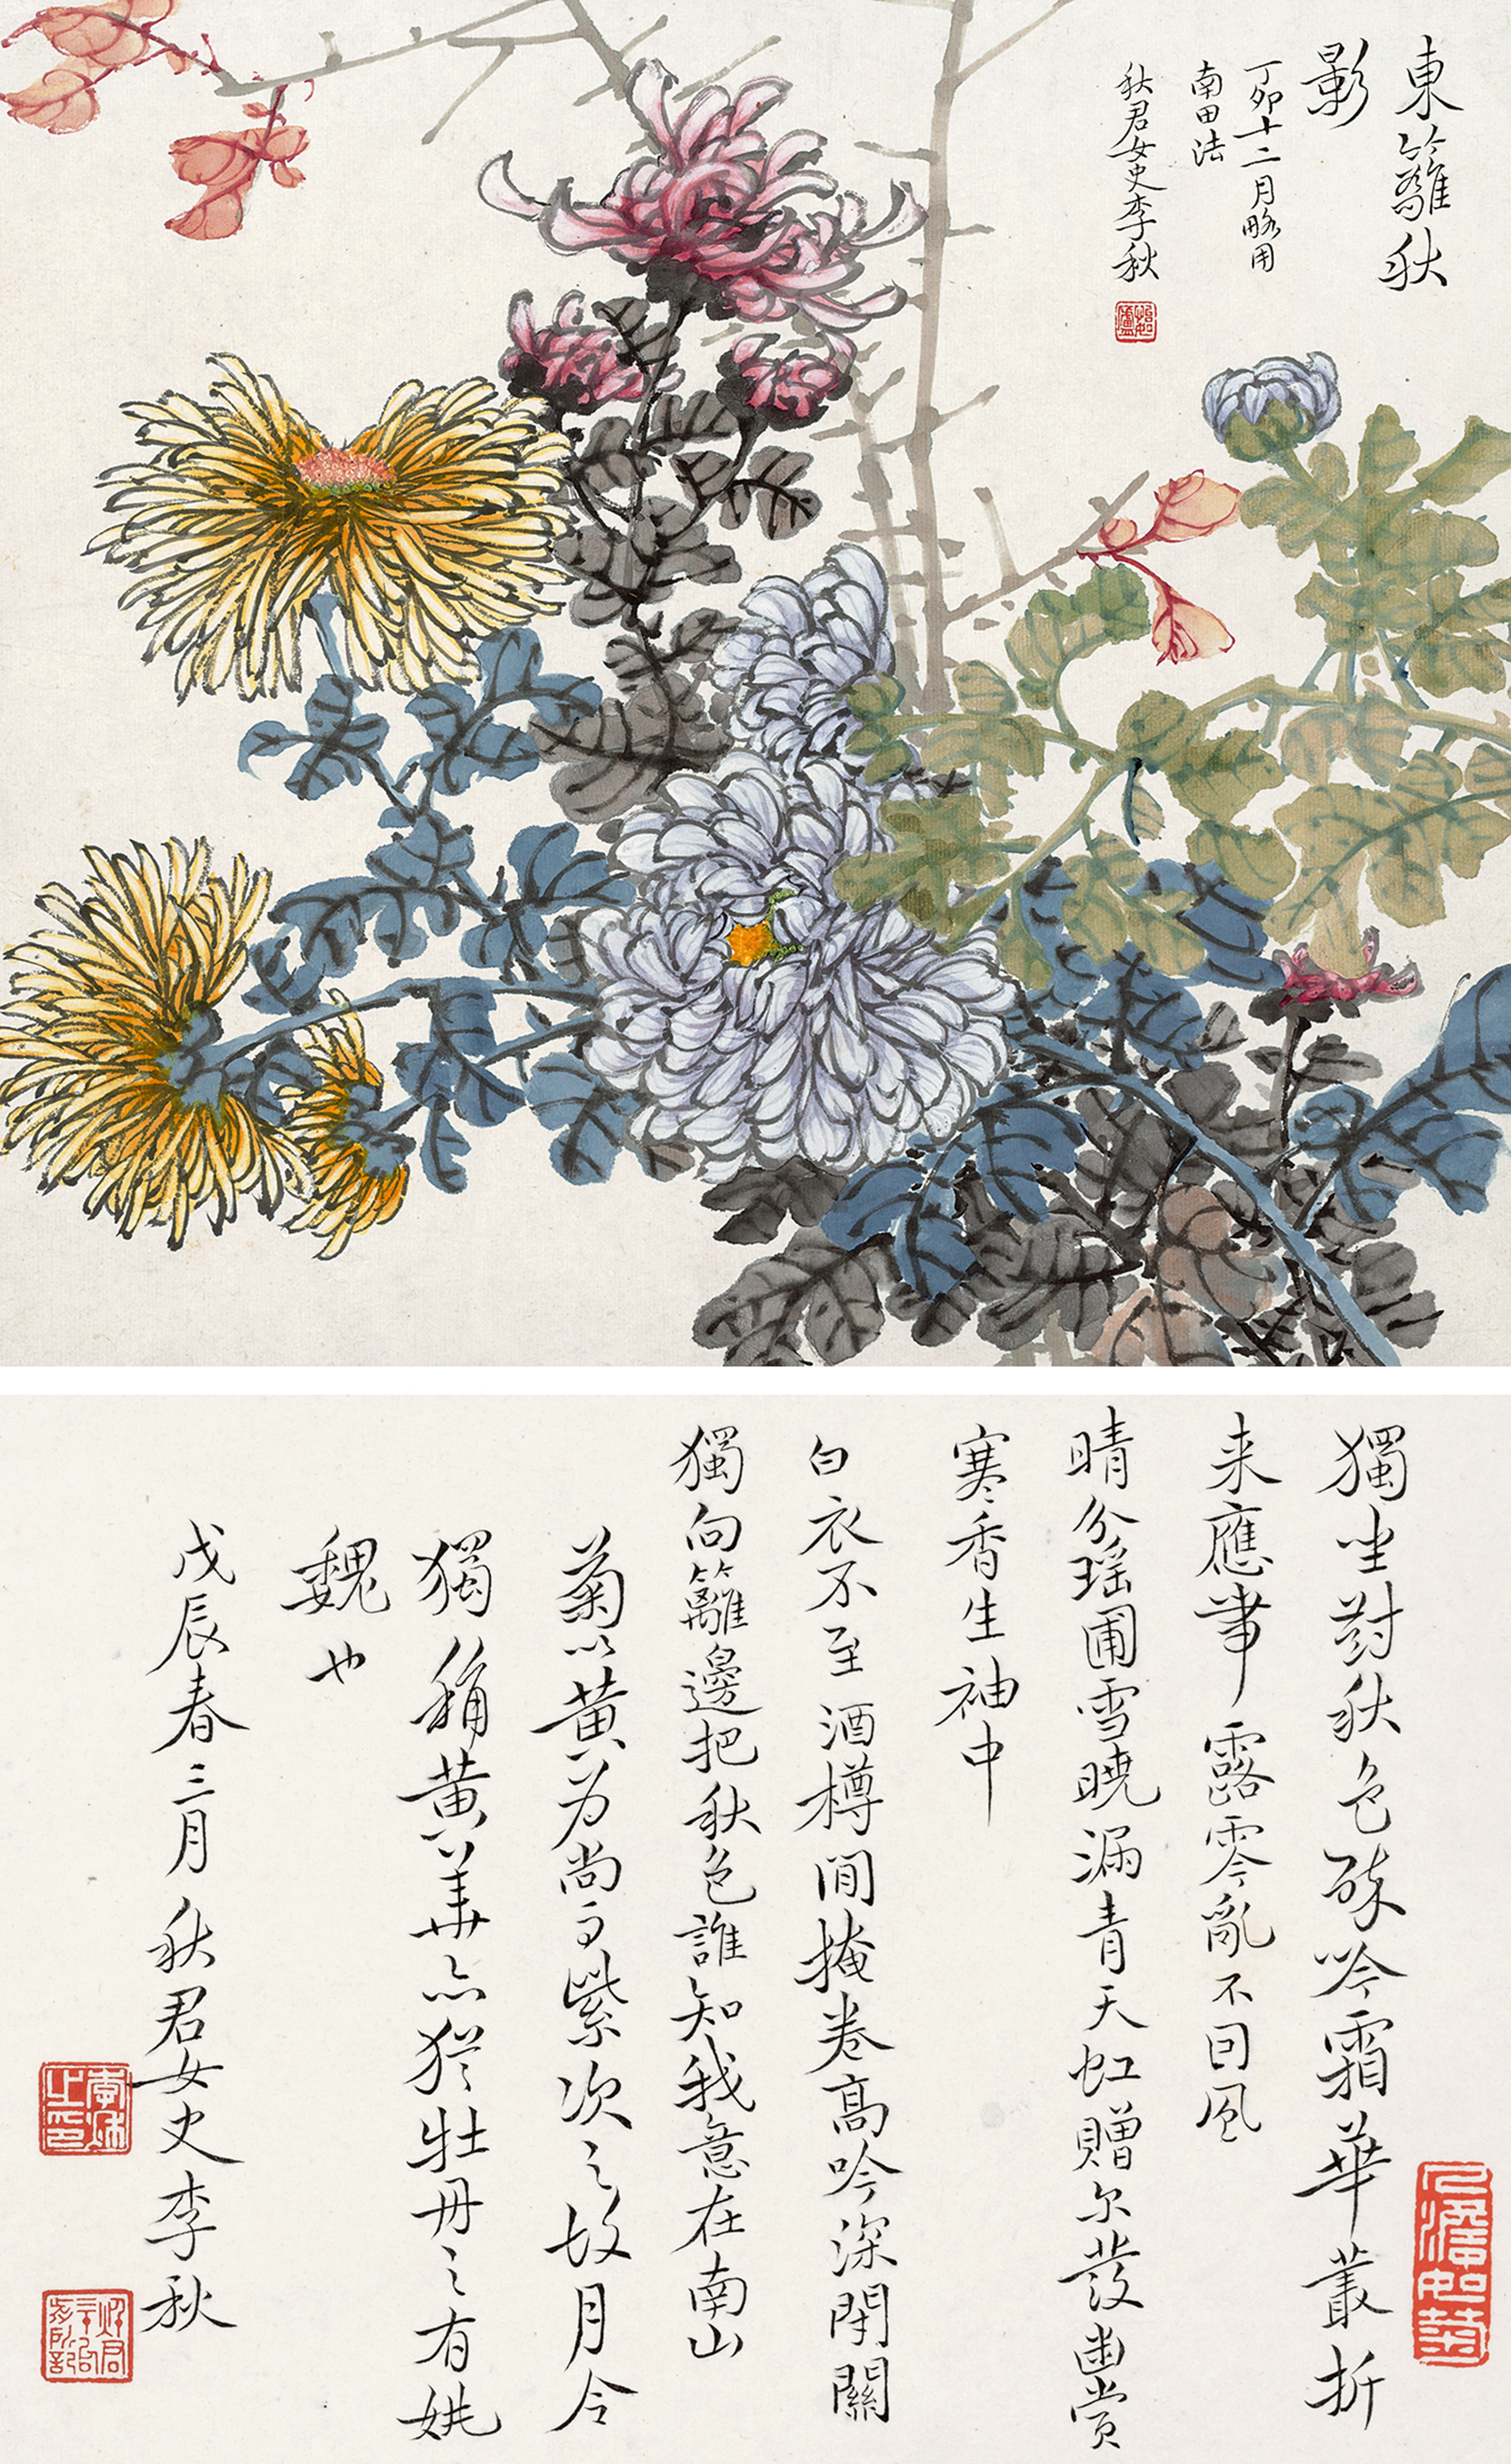 東籬秋
影
丁卯十二月略用
南田法
秋君女史李秋
獨坐對秋色醉吟霜華叢折
来應帶露零亂不因風
晴分瑶圃雪曉漏青天虹贈尔發幽赏
寒香生袖中
白衣不至酒樽閒掩卷高吟深閉關
獨向籬邊把秋色誰知我意在南山
菊以黄为尚而紫次之故月令
獨稱黄華亦犹牡丹之有姚
魏也
戊辰春三月秋君女史李秋
人澹如菊
李秋之印